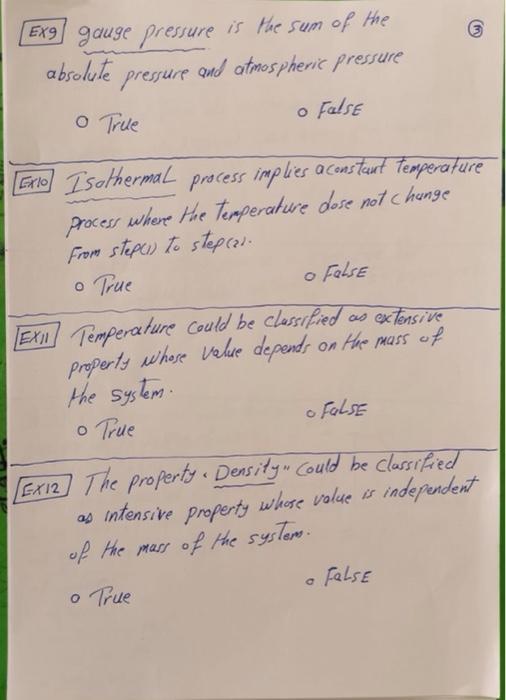 Ex9 gauge pressure is the sum of the 3
absolute pressure and atmospheric pressure
o True o FalSE
Ex10 IsothermaL process implies a constant Temperature
process where the Temperature dose not change
From step(1) to step(2).
o True o FalSE
Ex11 Temperature could be classified as extensive
property whose value depends on the mass of
the system.
o True o FalSE
Ex12 The property "Density" could be classified
as intensive property whose value is independent
of the mass of the system.
o True o FalSE